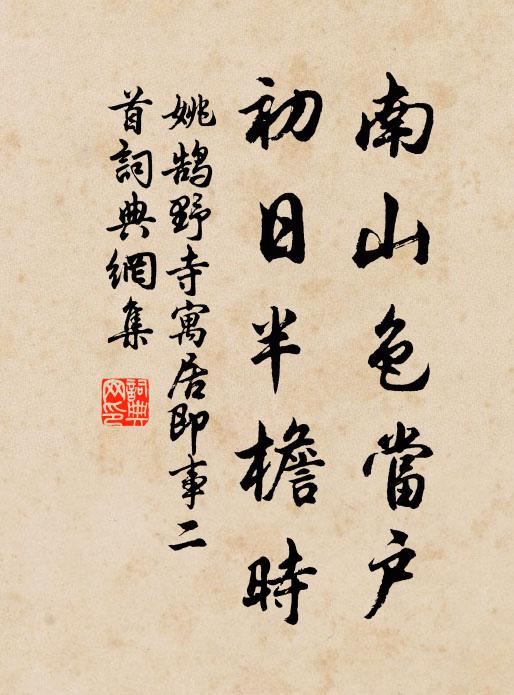 南山色當戶
初日半檐時
姚鵠野寺寓居即事二
首詞典網集
詞典網印